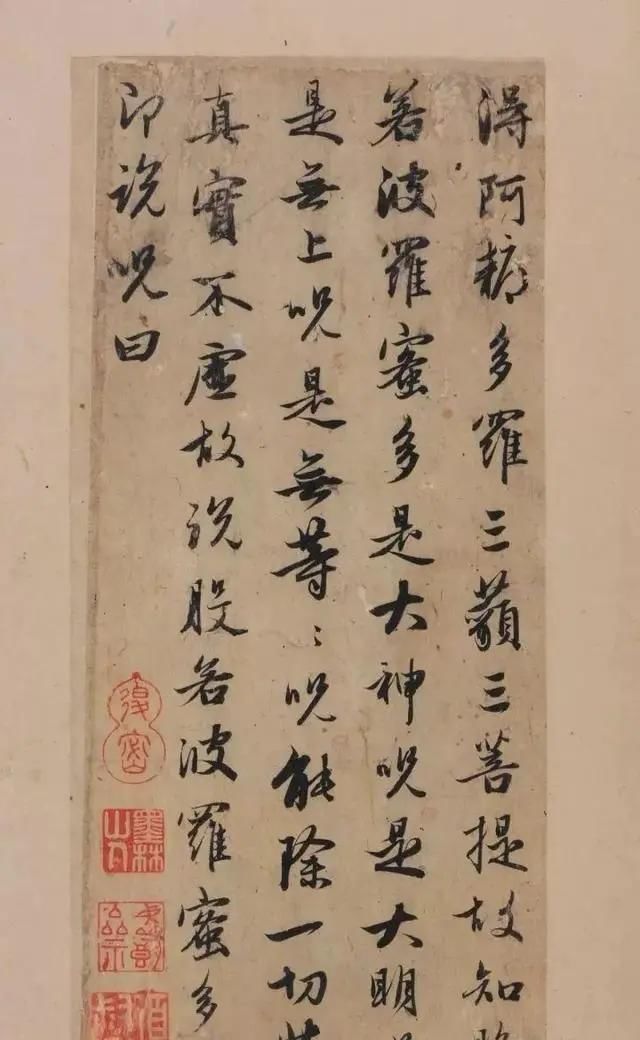 得阿耨多羅三藐三菩提故知
若波羅蜜多是大神呪是大明
是無上呪是無等〻呪能除一切
真實不虛故說般若波羅蜜多
即說呪曰
墨林山人